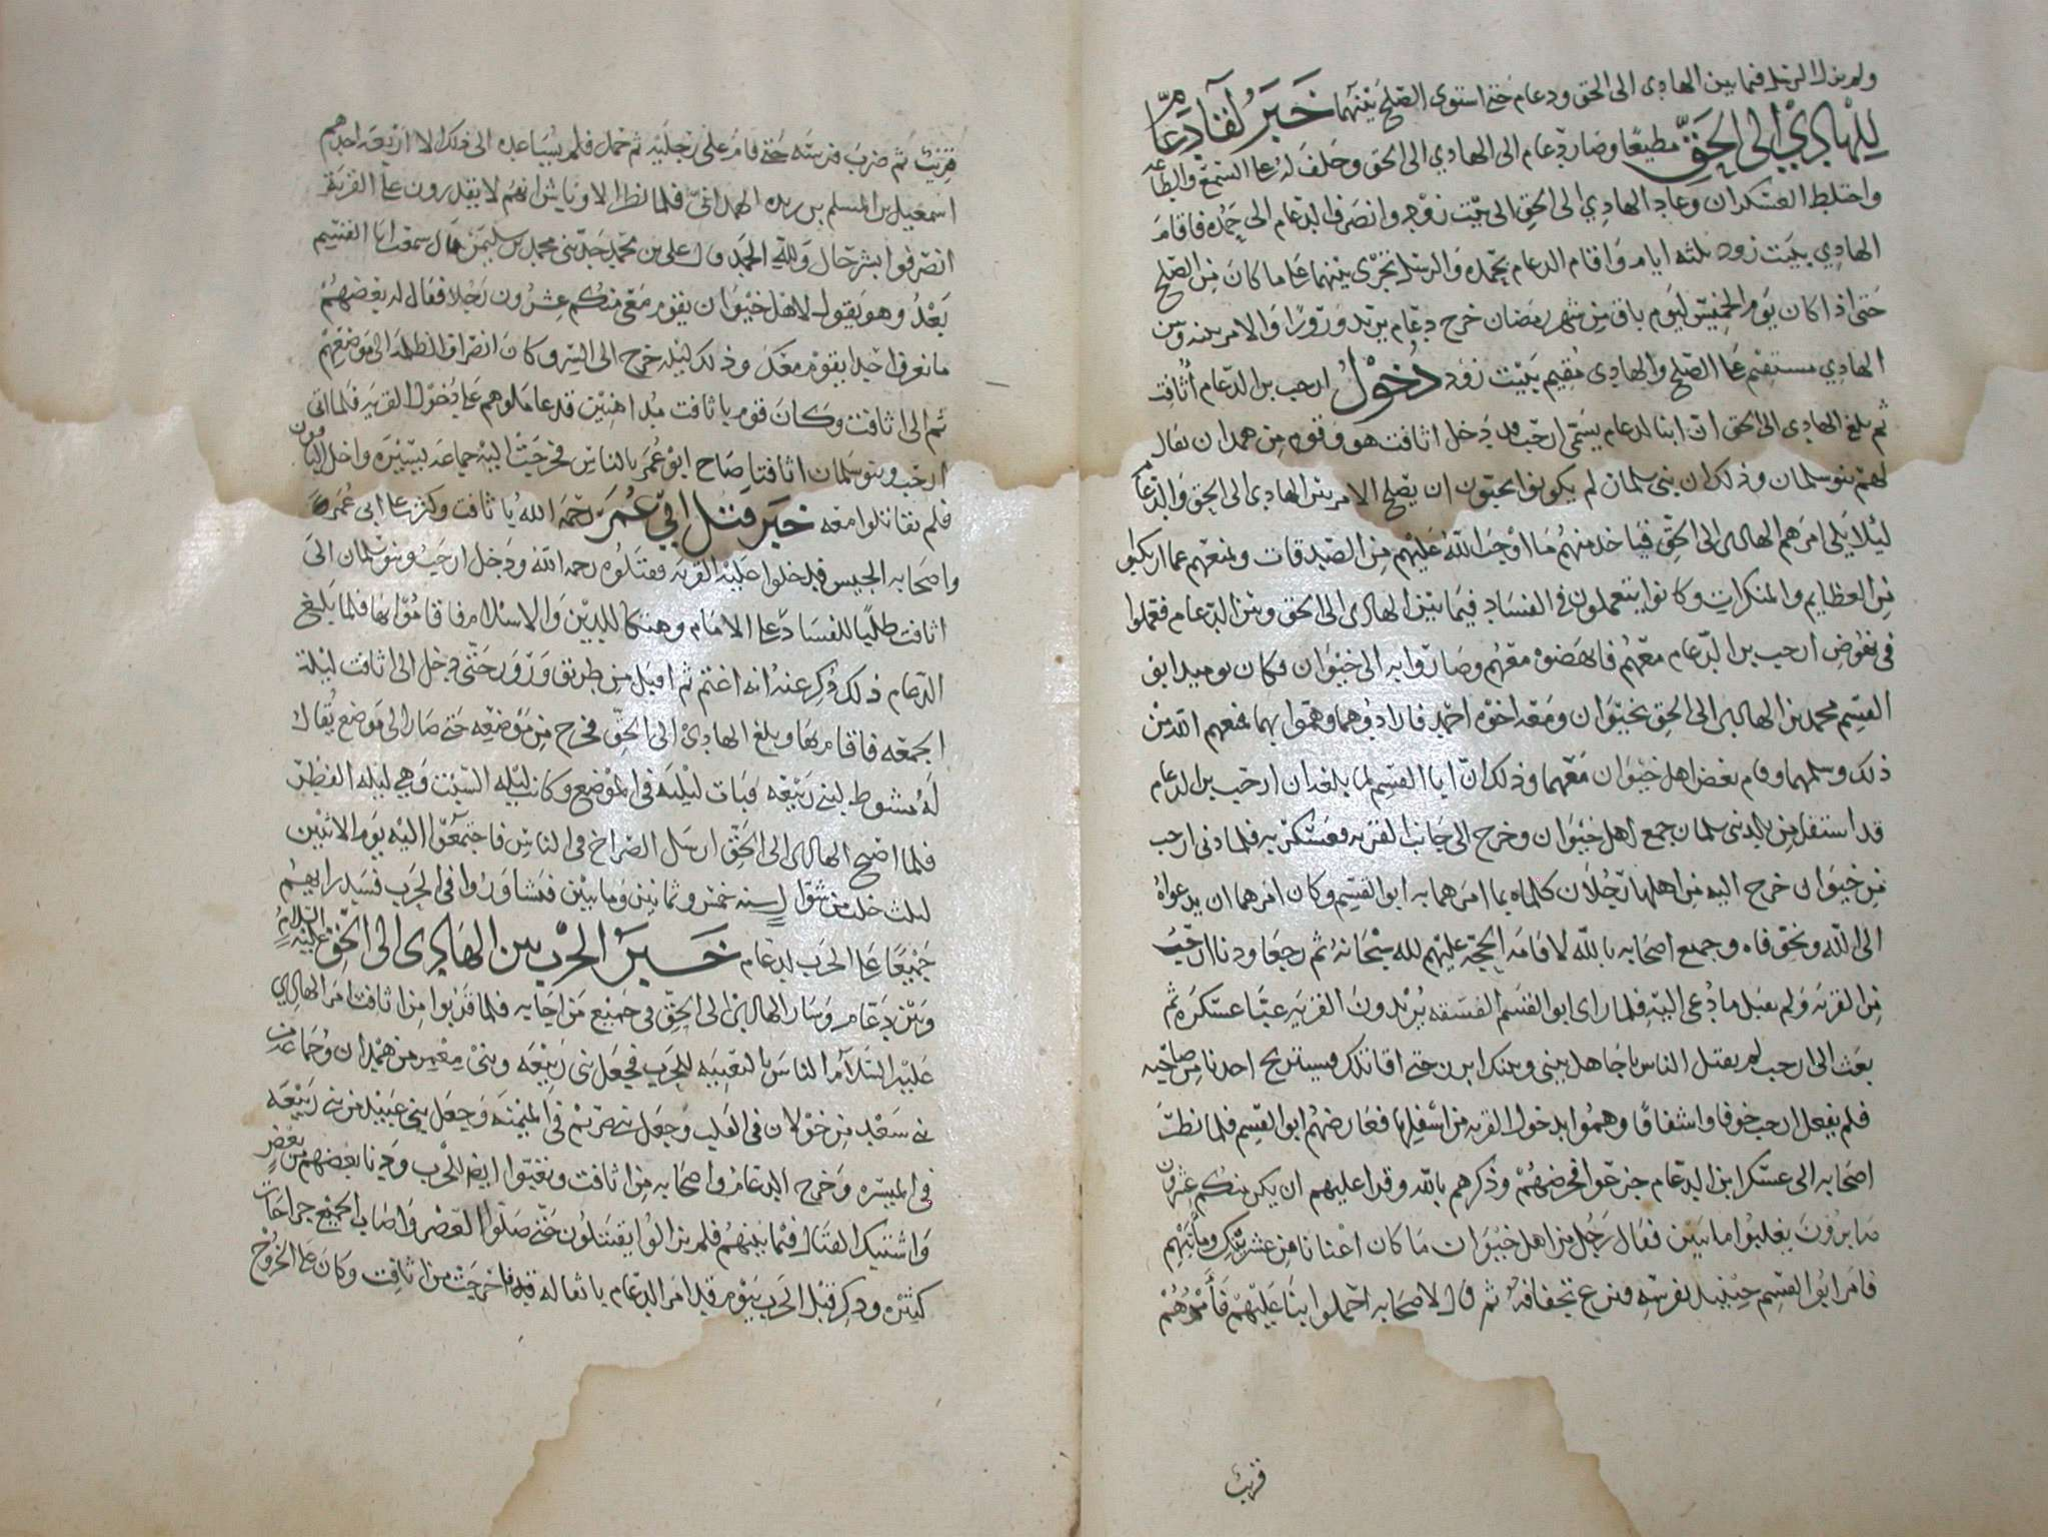 ولم يزل الرسل فيما بين الهادي الى الحق ودعام حتى استوى الصلح بينهما خبر لقاء دعام
للهادي الى الحق مطيعا وصار دعام الى الهادي الى الحق وحلف له على السمع والطاعه
واختلط العسكران وعاد الهادي الى الحق الى بيت زود وانصرف الدعام الى حمده فاقام
الهادي ببيت زود ثلثه ايام واقام الدعام بحمده والرسل تجرى بينهما على ما كان من الصلح
حتى اذا كان يوم الخميس ليوم باق من شهر رمضان خرج دعام يريد ورورا والامر بينه وبين
الهادي مستقيم على الصلح والهادى مقيم ببيت زود دخول ارحب بن الدعام أثافت
ثم بلغ الهادي الى الحق ان ابنا لدعام يسمى ارحب قد دخل اثافت هو وقوم من همدان يقال
لهم بنو سلمان وذلك ان بنى سلمان لم يكونوا يحبون ان يصلح الامر بين الهادي الى الحق والدعام
ليلا يلى امرهم الهادى الى الحق فياخذ منهم ما اوجب الله عليهم من الصدقات ويمنعهم عما ارتكبوا
من العظايم والمنكرات وكانوا يتعملون في الفساد فيما بين الهادى الى الحق وبين الدعام فعملوا
في نهوض ارحب بن الدعام معهم فانهضوه معهم وصاروا به الى خيوان وكان يوميد ابو
القسم محمد بن الهادى الى الحق بخيوان ومعه اخوه احمد فارادوهما وهموا بهما فمنعهم الله من
ذلك وسلمهما وقام بعض اهل خيوان معهما وذلك ان ابا القسم لما بلغه ان ارحب بن الدعام
قد استقل من بلد بنى سلمان جمع اهل خيوان وخرج الى جانب القريه فعسكر به فلما دنى ارحب
من خيوان خرج اليه من اهلها رجلان كلماه بما امرهما به ابو القسم وكان امرهما ان يدعواه
الى الله ويخوفاه وجميع اصحابه بالله لاقامه الحجه عليهم لله سبحانه ثم رجعا ودنا ارحب
من القريه ولم يقبل ما دعى اليه فلما راى ابو القسم الفسقه يريدون القريه عبا عسكره ثم
بعث الى ارحب لم يقتل الناس يا جاهل بينى وبينك ابرز حتى اقاتلك فيستريح احدنا من صاحبه
فلم يفعل ارحب خوفا واشفاقا وهموا بدخول القريه من اسفلها فعارضهم ابو القسم فلما نظر
اصحابه الى عسكر ابن الدعام جزعوا فحرضهم وذكرهم بالله وقرا عليهم ان يكن منكم عشرون
صابرون يغلبوا مايتين فقال رجل من اهل خيوان ما كان اغنانا من عشرينك ومايتيهم
فامر ابو القسم حينيد بفرسه فنزع تجفافه ثم قال لاصحابه احملوا بنا عليهم فأمرهم
قريت
قريت ثم ضرب فرسه حتى قام على رجليه ثم حمل فلم يساعده الى ذلك الا اربعه احدهم
اسمعيل بن المسلم بن ريده الهمداني فلما نظر الاوباش انهم لا يقدرون على القريه
انصرفوا بشر حال ولله الحمد قال على بن محمد حدثنى محمد بن سليمن قال سمعت ابا القسم
بعد وهو يقول لاهل خيوان يقوم معى منكم عشرون رجلا فقال له بعضهم
ما نعرف احدا يقوم معك وذلك ليله خرج الى السر وكان انصراف الظلمه الى موضعهم
ثم الى اثافت وكان قوم باثافت مداهنين قد عاملوهم على دخول القريه فلما اتى
ارحب وبنو سلمان اثافتا صاح ابو عمر بالناس فخرجت اليه جماعه يسيره واخل الباقون
فلم يقاتلوا معه خبر قتل ابي عمر رحمه الله باثافت وكثر على ابى عمر
واصحابه الجيش فدخلوا عليه القريه فقتلوه رحمه الله ودخل ارحب وبنو سلمان الى
اثافت طلبا للفساد على الامام وهتكا للدين والاسلام فاقاموا بها فلما بلغ
الدعام ذلك ذكر عنه انه اغتم ثم اقبل من طريق ورور حتى دخل الى اثافت ليلة
الجمعه فاقام بها وبلغ الهادي الى الحق فخرج من موضعه حتى صار الى موضع يقال
له مشوط لبنى ربيعه فبات ليلته في الموضع وكانت ليله السبت وهي ليله الفطر
فلما اصبح الهادى الى الحق ارسل الصراخ في الناس فاجتمعوا اليه يوم الاثنين
لثلث خلت من شوال سنه خمس وثمانين ومايتين فتشاوروا في الحرب فسدد رايهم
جميعا على الحرب لدعام خبر الحرب بين الهادى الى الحق عليه السلام
وبين دعام وسار الهادى الى الحق في جميع من اجابه فلما قربوا من اثافت امر الهادي
عليه السلام الناس بالتعبيه للحرب فجعل بنى ربيعه وبنى معمر من همدان وجماعه من
بني سعد من خولان في القلب وجعل بنى صريم في الميمنه وجعل بنى عبيد من بنى ربيعه
في الميسره وخرج الدعام واصحابه من اثافت وتعبوا ايضا للحرب ودنا بعضهم من بعض
واشتبك القتال فيما بينهم فلم يزالوا يقتتلون حتى صلوا العصر واصاب الجميع جراحات
كثيره وذكر قبل الحرب بيوم قد امر الدعام باثقاله فاخرجت من اثافت وكان على الخروج